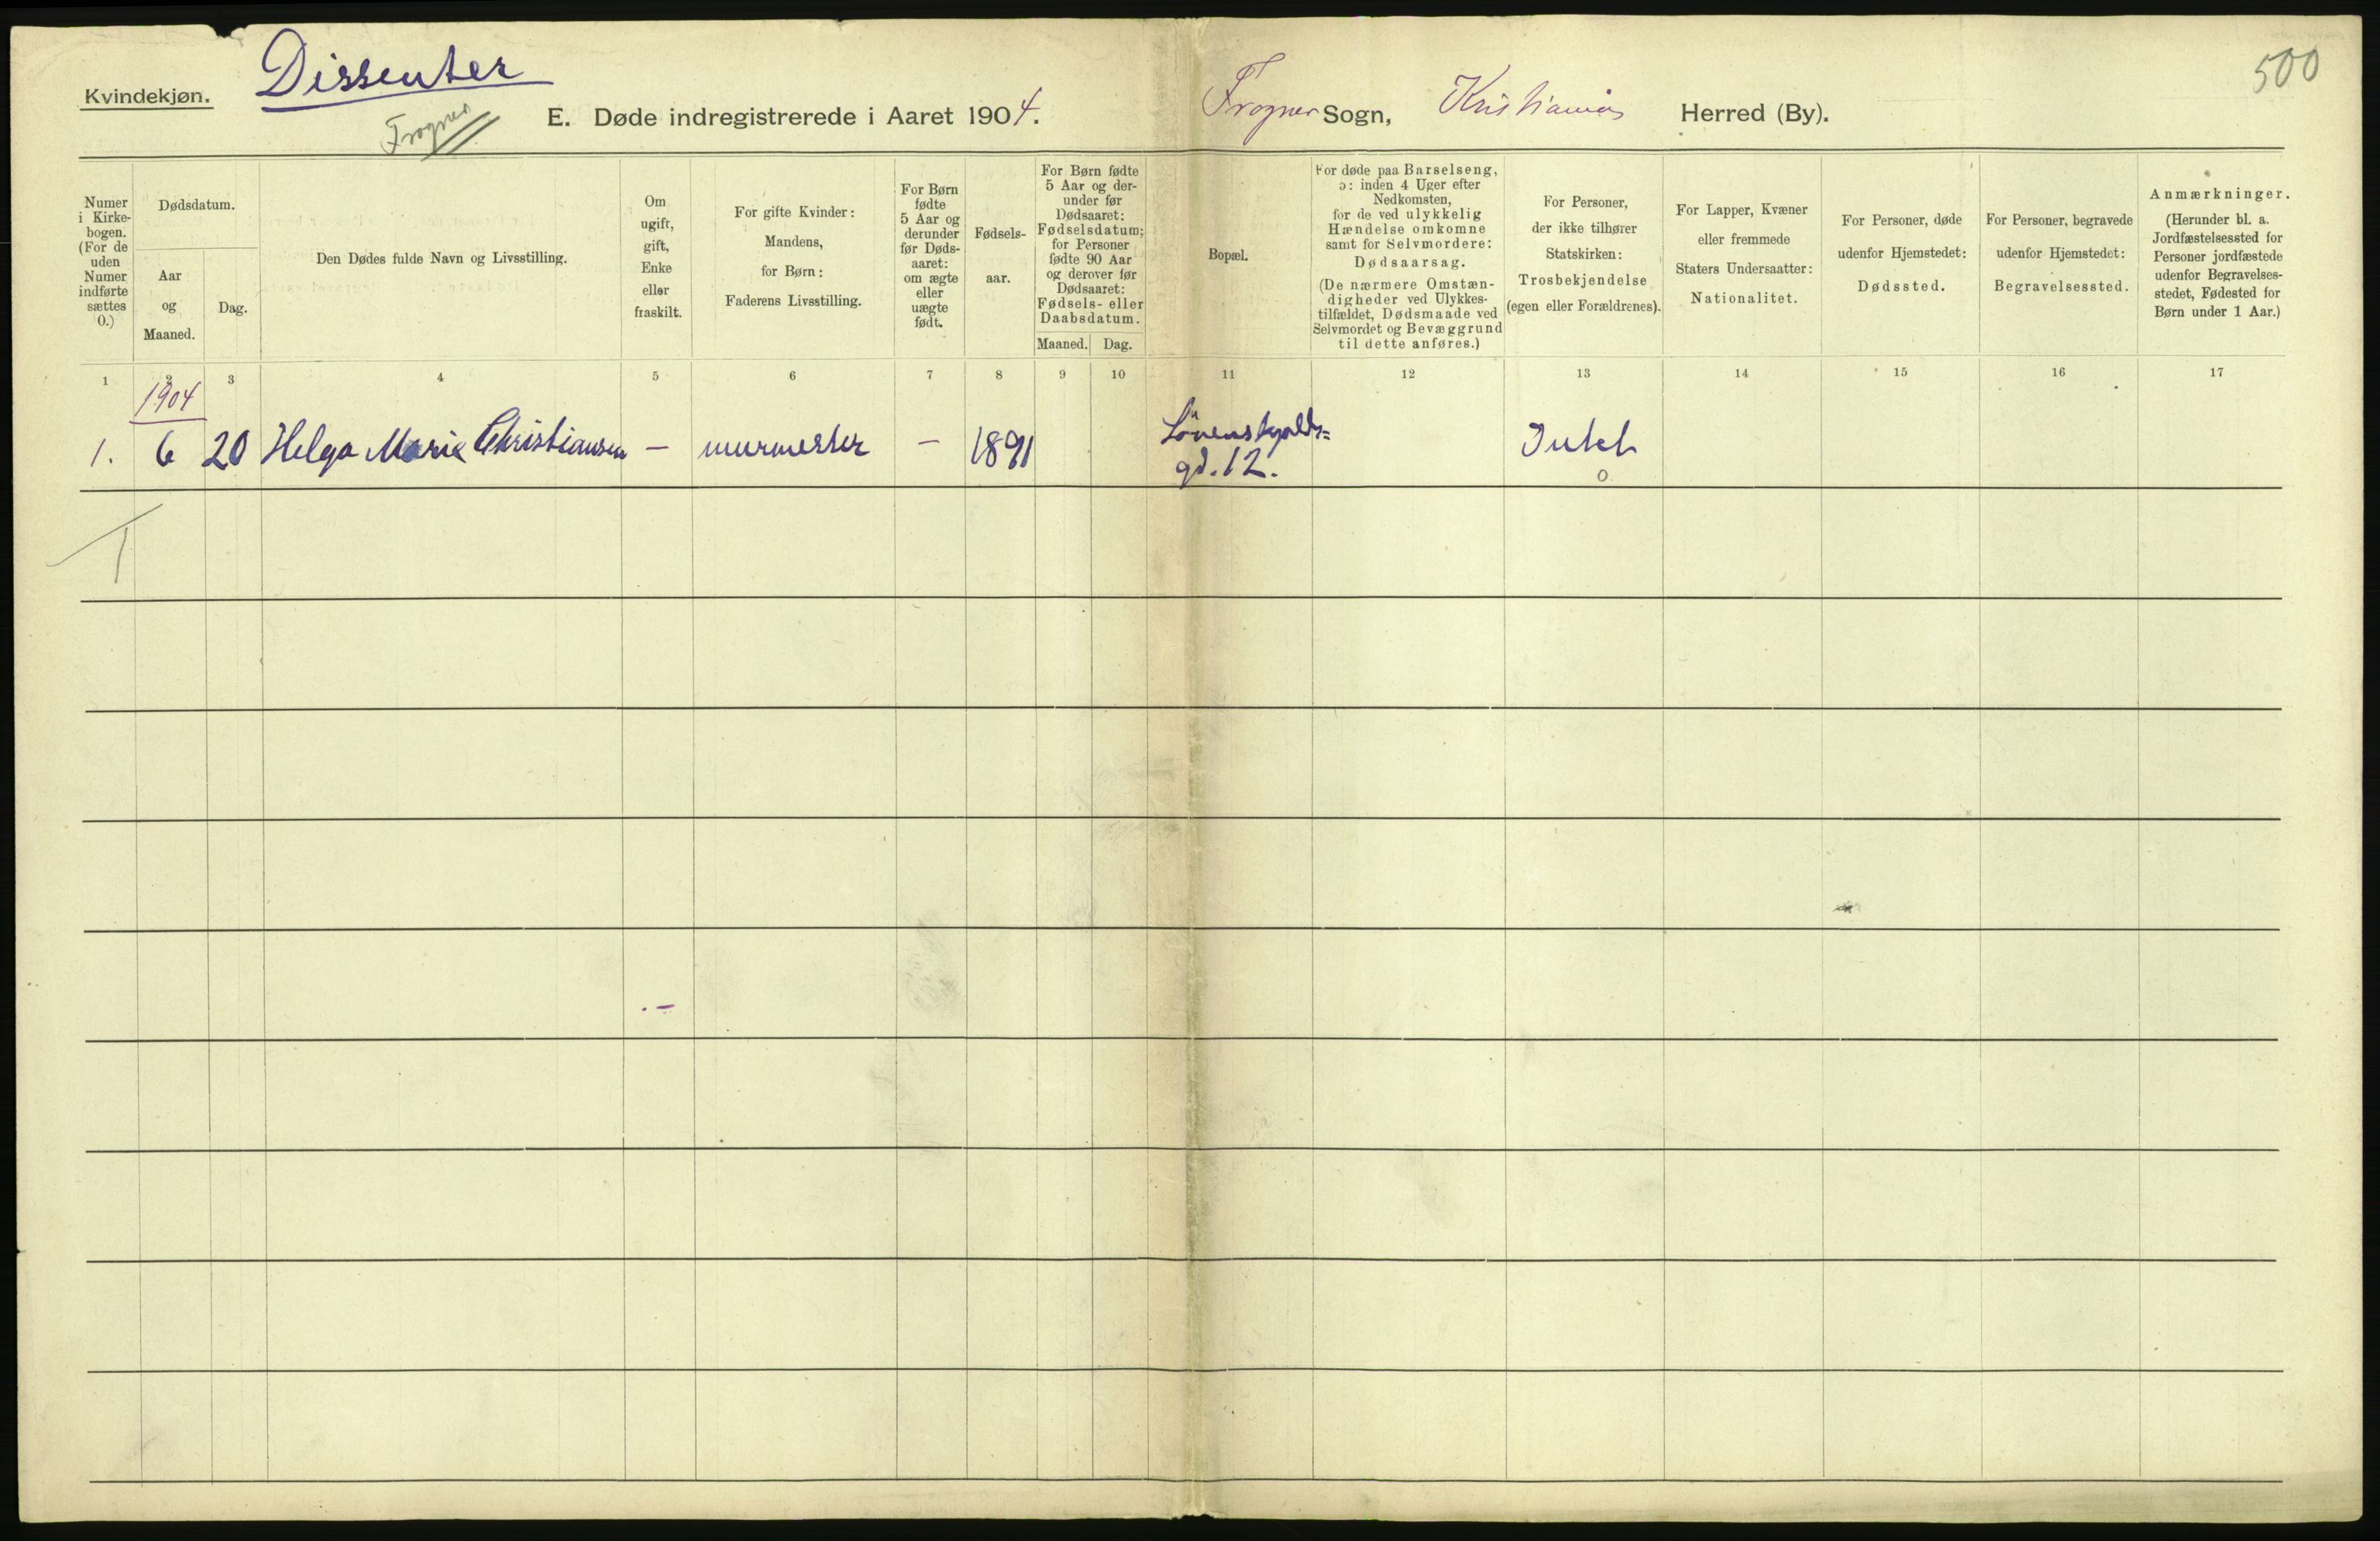 Kvindekjøn.
Dissenter
Frogner
500
E. Døde indregistrerede i Aaret 1904.
Frogner Sogn, Kristiania Herred (By).
Numer
i Kirke-
bogen.
(For de
uden
Numer
indførte
sættes
0.)
Dødsdatum.
Aar
og
Maaned.
Dag.
Den Dødes fulde Navn og Livsstilling.
Om
ugift,
gift,
Enke
eller
fraskilt.
For gifte Kvinder:
Mandens,
for Børn:
Faderens Livsstilling.
For Børn
fødte
5 Aar og
derunder
før Døds-
aaret:
om ægte
eller
uægte
født.
Fødsels-
aar.
For Børn fødte
5 Aar og der-
under før
Dødsaaret:
Fødselsdatum;
for Personer
fødte 90 Aar
og derover før
Dødsaaret:
Fødsels- eller
Daabsdatum.
Maaned. Dag.
Bopæl.
For døde paa Barselseng,
ɔ: inden 4 Uger efter
Nedkomsten,
for de ved ulykkelig
Hændelse omkomne
samt for Selvmordere:
Dødsaarsag.
(De nærmere Omstæn-
digheder ved Ulykkes-
tilfældet, Dødsmaade ved
Selvmordet og Bevæggrund
til dette anføres.)
For Personer,
der ikke tilhører
Statskirken:
Trosbekjendelse
(egen eller Forældrenes).
For Lapper, Kvæner
eller fremmede
Staters Undersaatter:
Nationalitet.
For Personer, døde
udenfor Hjemstedet:
Dødssted.
For Personer, begravede
udenfor Hjemstedet:
Begravelsessted.
Anmærkninger.
(Herunder bl. a.
Jordfæstelsessted for
Personer jordfæstede
udenfor Begravelses-
stedet, Fødested for
Børn under 1 Aar.)
1 2 3 4 5 6 7 8 9 10 11 12 13 14 15 16 17
1904
1. 6 20 Helga Marie Christiansen — murmester — 1891 Lövenskjolds=
gd. 12.
Intet
0